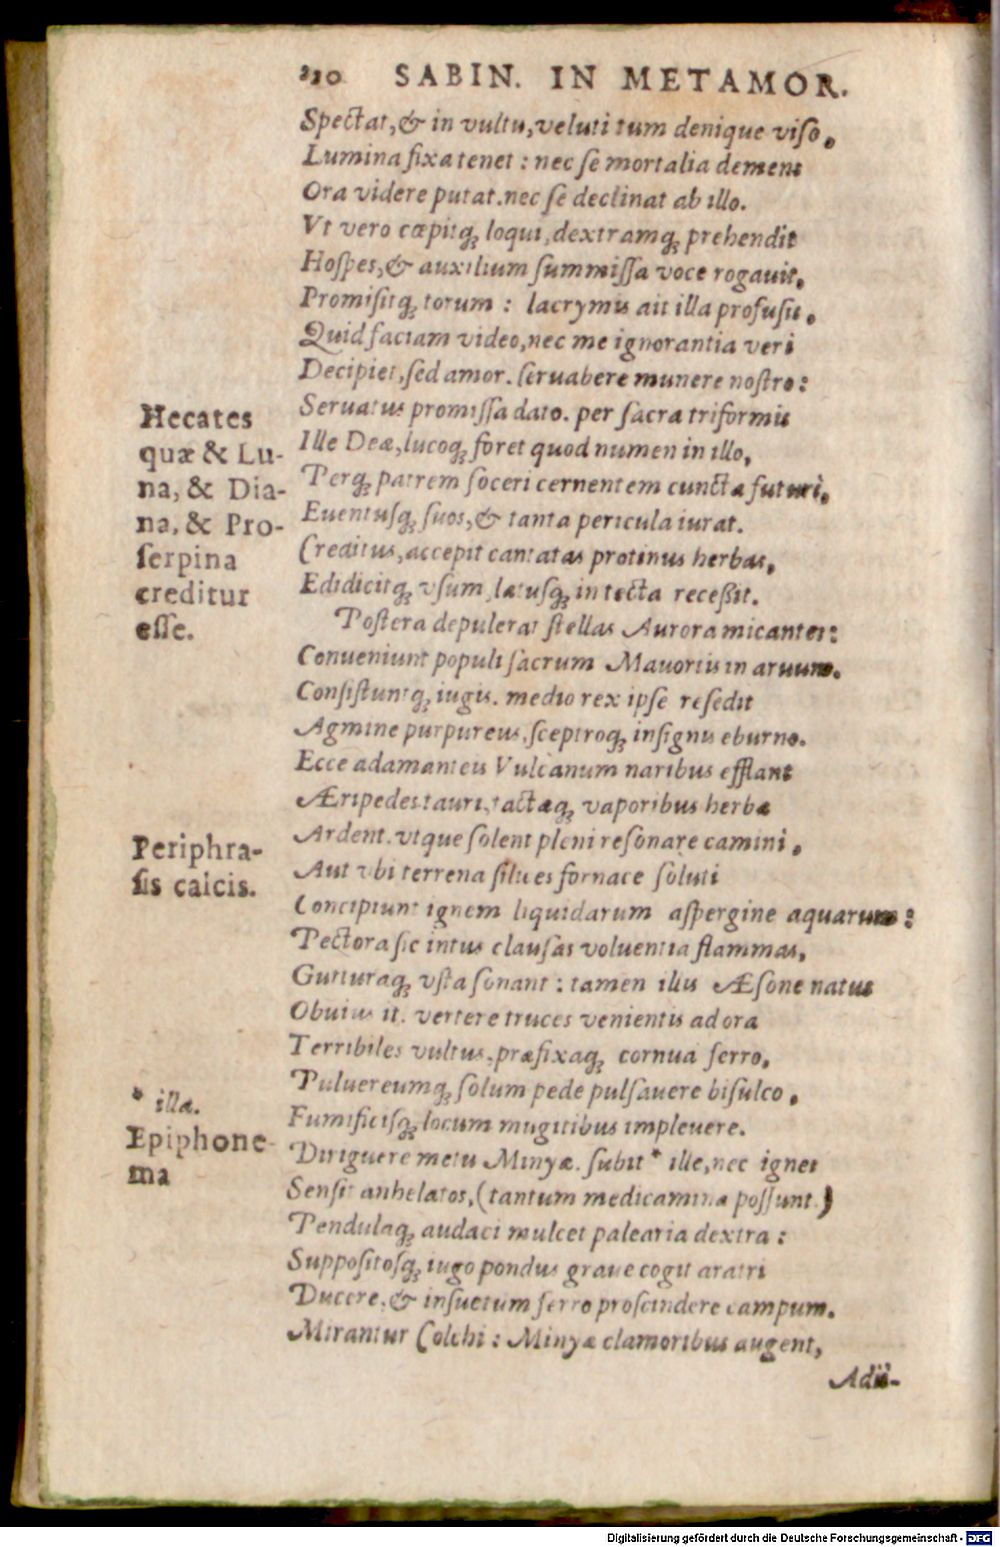 210 SABIN. IN METAMOR.
Spectat, & in vultu, veluti tum denique viso,
Lumina fixa tenet: nec se mortalia demens
Ora videre putat. nec se declinat ab illo.
Vt vero cœpitq́; loqui, dextramq́; prehendit
Hospes, & auxilium summissa voce rogauit,
Promisitq́; torum: lacrymis ait illa profusis,
Quid faciam video, nec me ignorantia veri
Decipiet, sed amor. seruabere munere nostro:
Seruatus promissa dato. per sacra triformis
Ille Deæ, lucoq́; foret quod numen in illo,
Perq́; patrem soceri cernentem cuncta futuri,
Euentusq́; suos, & tanta pericula iurat.
Creditus, accepit cantatas protinus herbas,
Edidicitq́; vsum, lætusq́; in tecta receßit.
Postera depulerat stellas Aurora micantes:
Conueniunt populi sacrum Mauortis in aruum.
Consistuntq́; iugis. medio rex ipse resedit
Agmine purpureus, sceptroq́; insignis eburno.
Ecce adamanteis Vulcanum naribus efflant
Æripedes tauri, tactæq́; vaporibus herbæ
Ardent. vtque solent pleni resonare camini,
Aut vbi terrena silices fornace soluti
Concipiunt ignem liquidarum aspergine aquarum:
Pectora sic intus clausas voluentia flammas,
Gutturaq́; vsta sonant: tamen illis Æsone natus
Obuius it. vertere truces venientis ad ora
Terribiles vultus, præfixaq́; cornua ferro,
Puluereumq́; solum pede pulsauere bisulco,
Fumificisq́; locum mugitibus impleuere.
Diriguere metu Minyæ. subit * ille, nec ignes
Sensit anhelatos, (tantum medicamina possunt.)
Pendulaq́; audaci mulcet palearia dextra:
Suppositosq́; iugo pondus graue cogit aratri
Ducere, & insuetum ferro proscindere campum.
Mirantur Colchi: Minyæ clamoribus augent,
Adii-
Hecates
quæ & Lu-
na, & Dia-
na, & Pro-
serpina
creditur
esse.
Periphra-
sis calcis.
* illa.
Epiphone-
ma
Digitalisierung gefördert durch die Deutsche Forschungsgemeinschaft - DFG